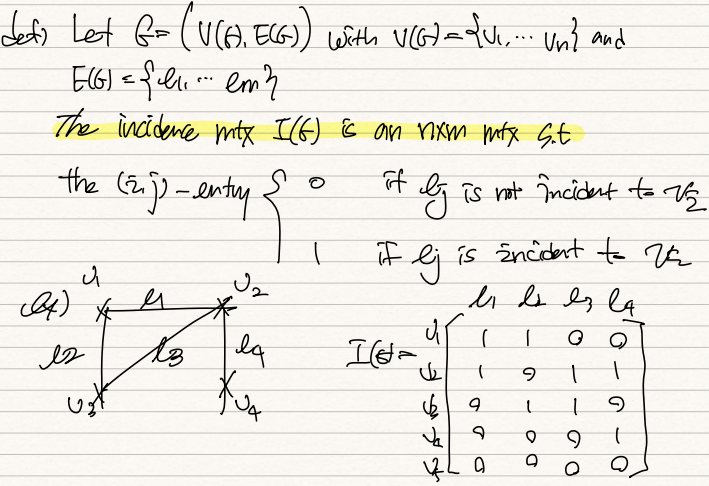 def) Let G = (V(G), E(G)) with V(G) = {v₁, ⋯ vₙ} and
E(G) = {e₁, ⋯ eₘ}
The incidence mtx I(G) is an n×m mtx s.t
the (i, j)-entry { 0 if eⱼ is not incident to vᵢ
1 if eⱼ is incident to vᵢ
ex) v₁ e₁ v₂
e₂ e₃ e₄
v₃ v₄
I(G) =
e₁ e₂ e₃ e₄
v₁ 1 1 0 0
v₂ 1 0 1 1
v₃ 0 1 1 0
v₄ 0 0 0 1
v₅ 0 0 0 0